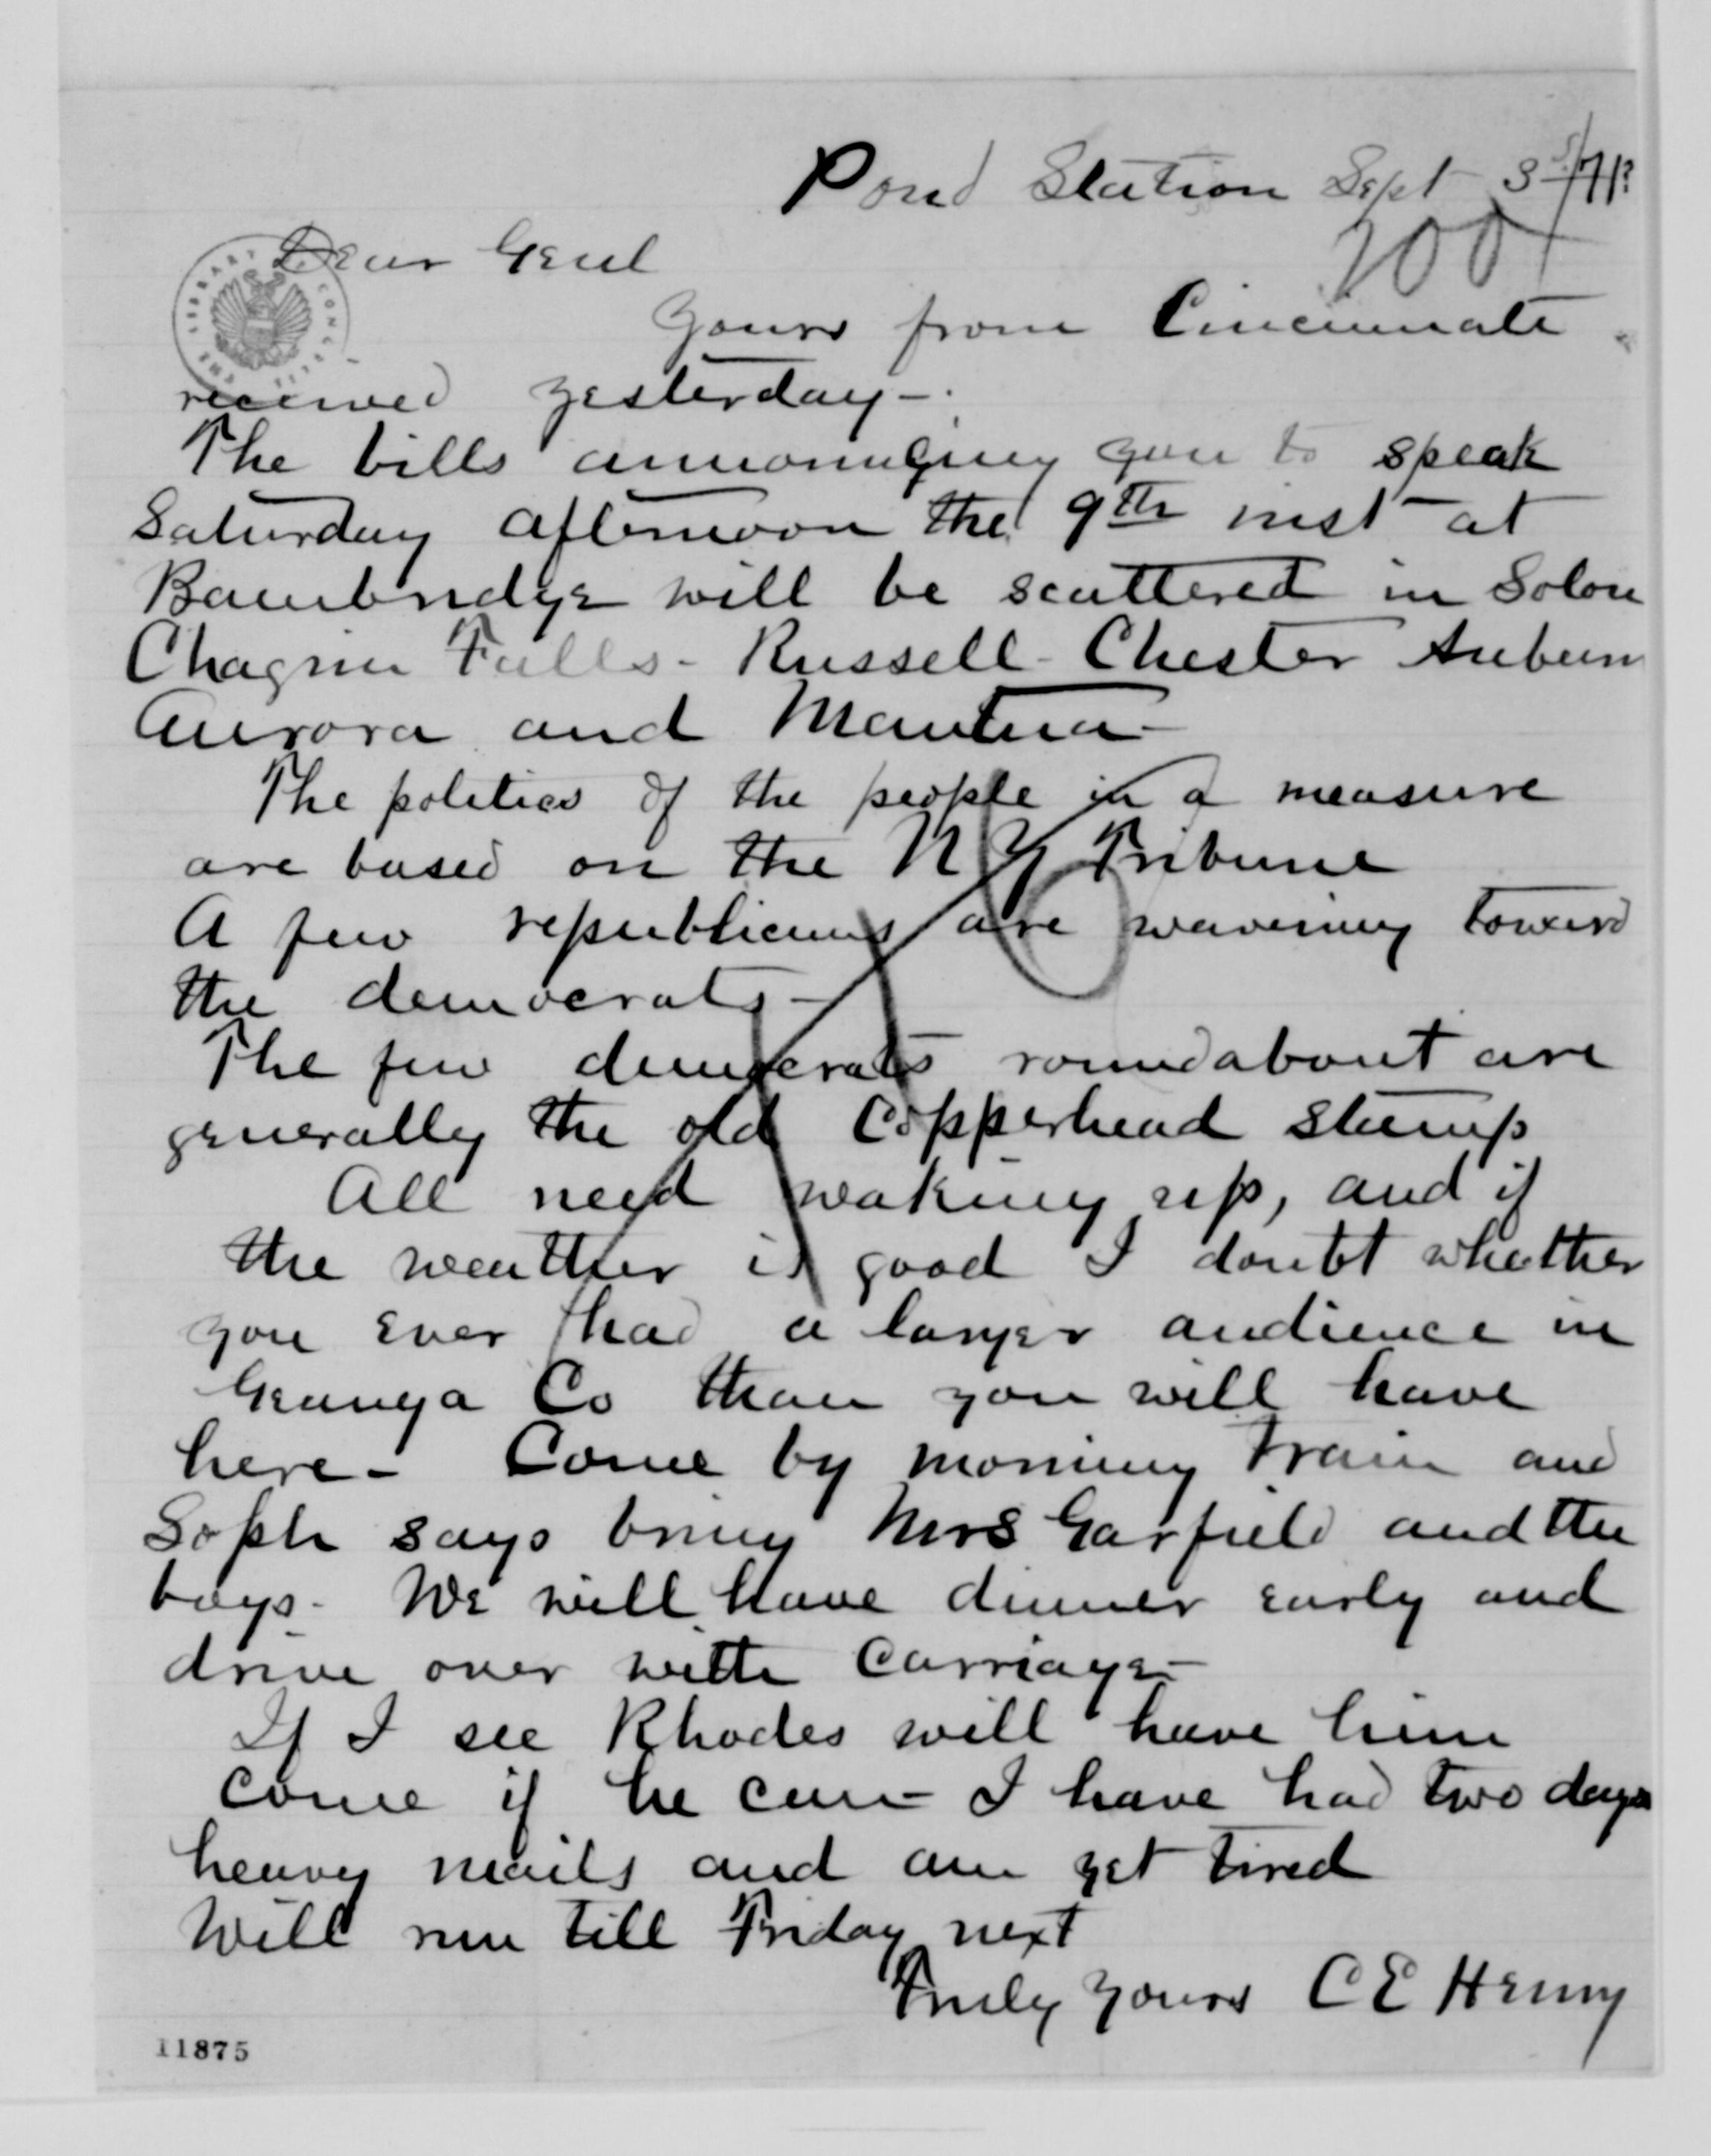 Pond Station Sept 3
200
Dear Genl
Yours from Cincinnati
received yesterday -
The bills announcing you to speak
Saturday afternoon the 9th inst at
Bainbridge will be scattered in Solon
Chagrin Falls - Russell - Chester Auburn
Aurora and Mantua -
The politics of the people in a measure
are based on the N Y Tribune
A few republicans are wavering toward
the democrats -
The few democrats roundabout are
generally the old Copperhead stamp
All need waking up, and if
the weather is good I doubt whether
you ever had a larger audience in
Geauga Co than you will have
here - Come by morning train and
Soph says bring Mrs Garfield and the
boys - We will have dinner early and
drive over with carriage -
If I see Rhodes will have him
come if he can - I have had two days
heavy mails and am yet tired
Will run till Friday next
Truly yours C E Henry
11875